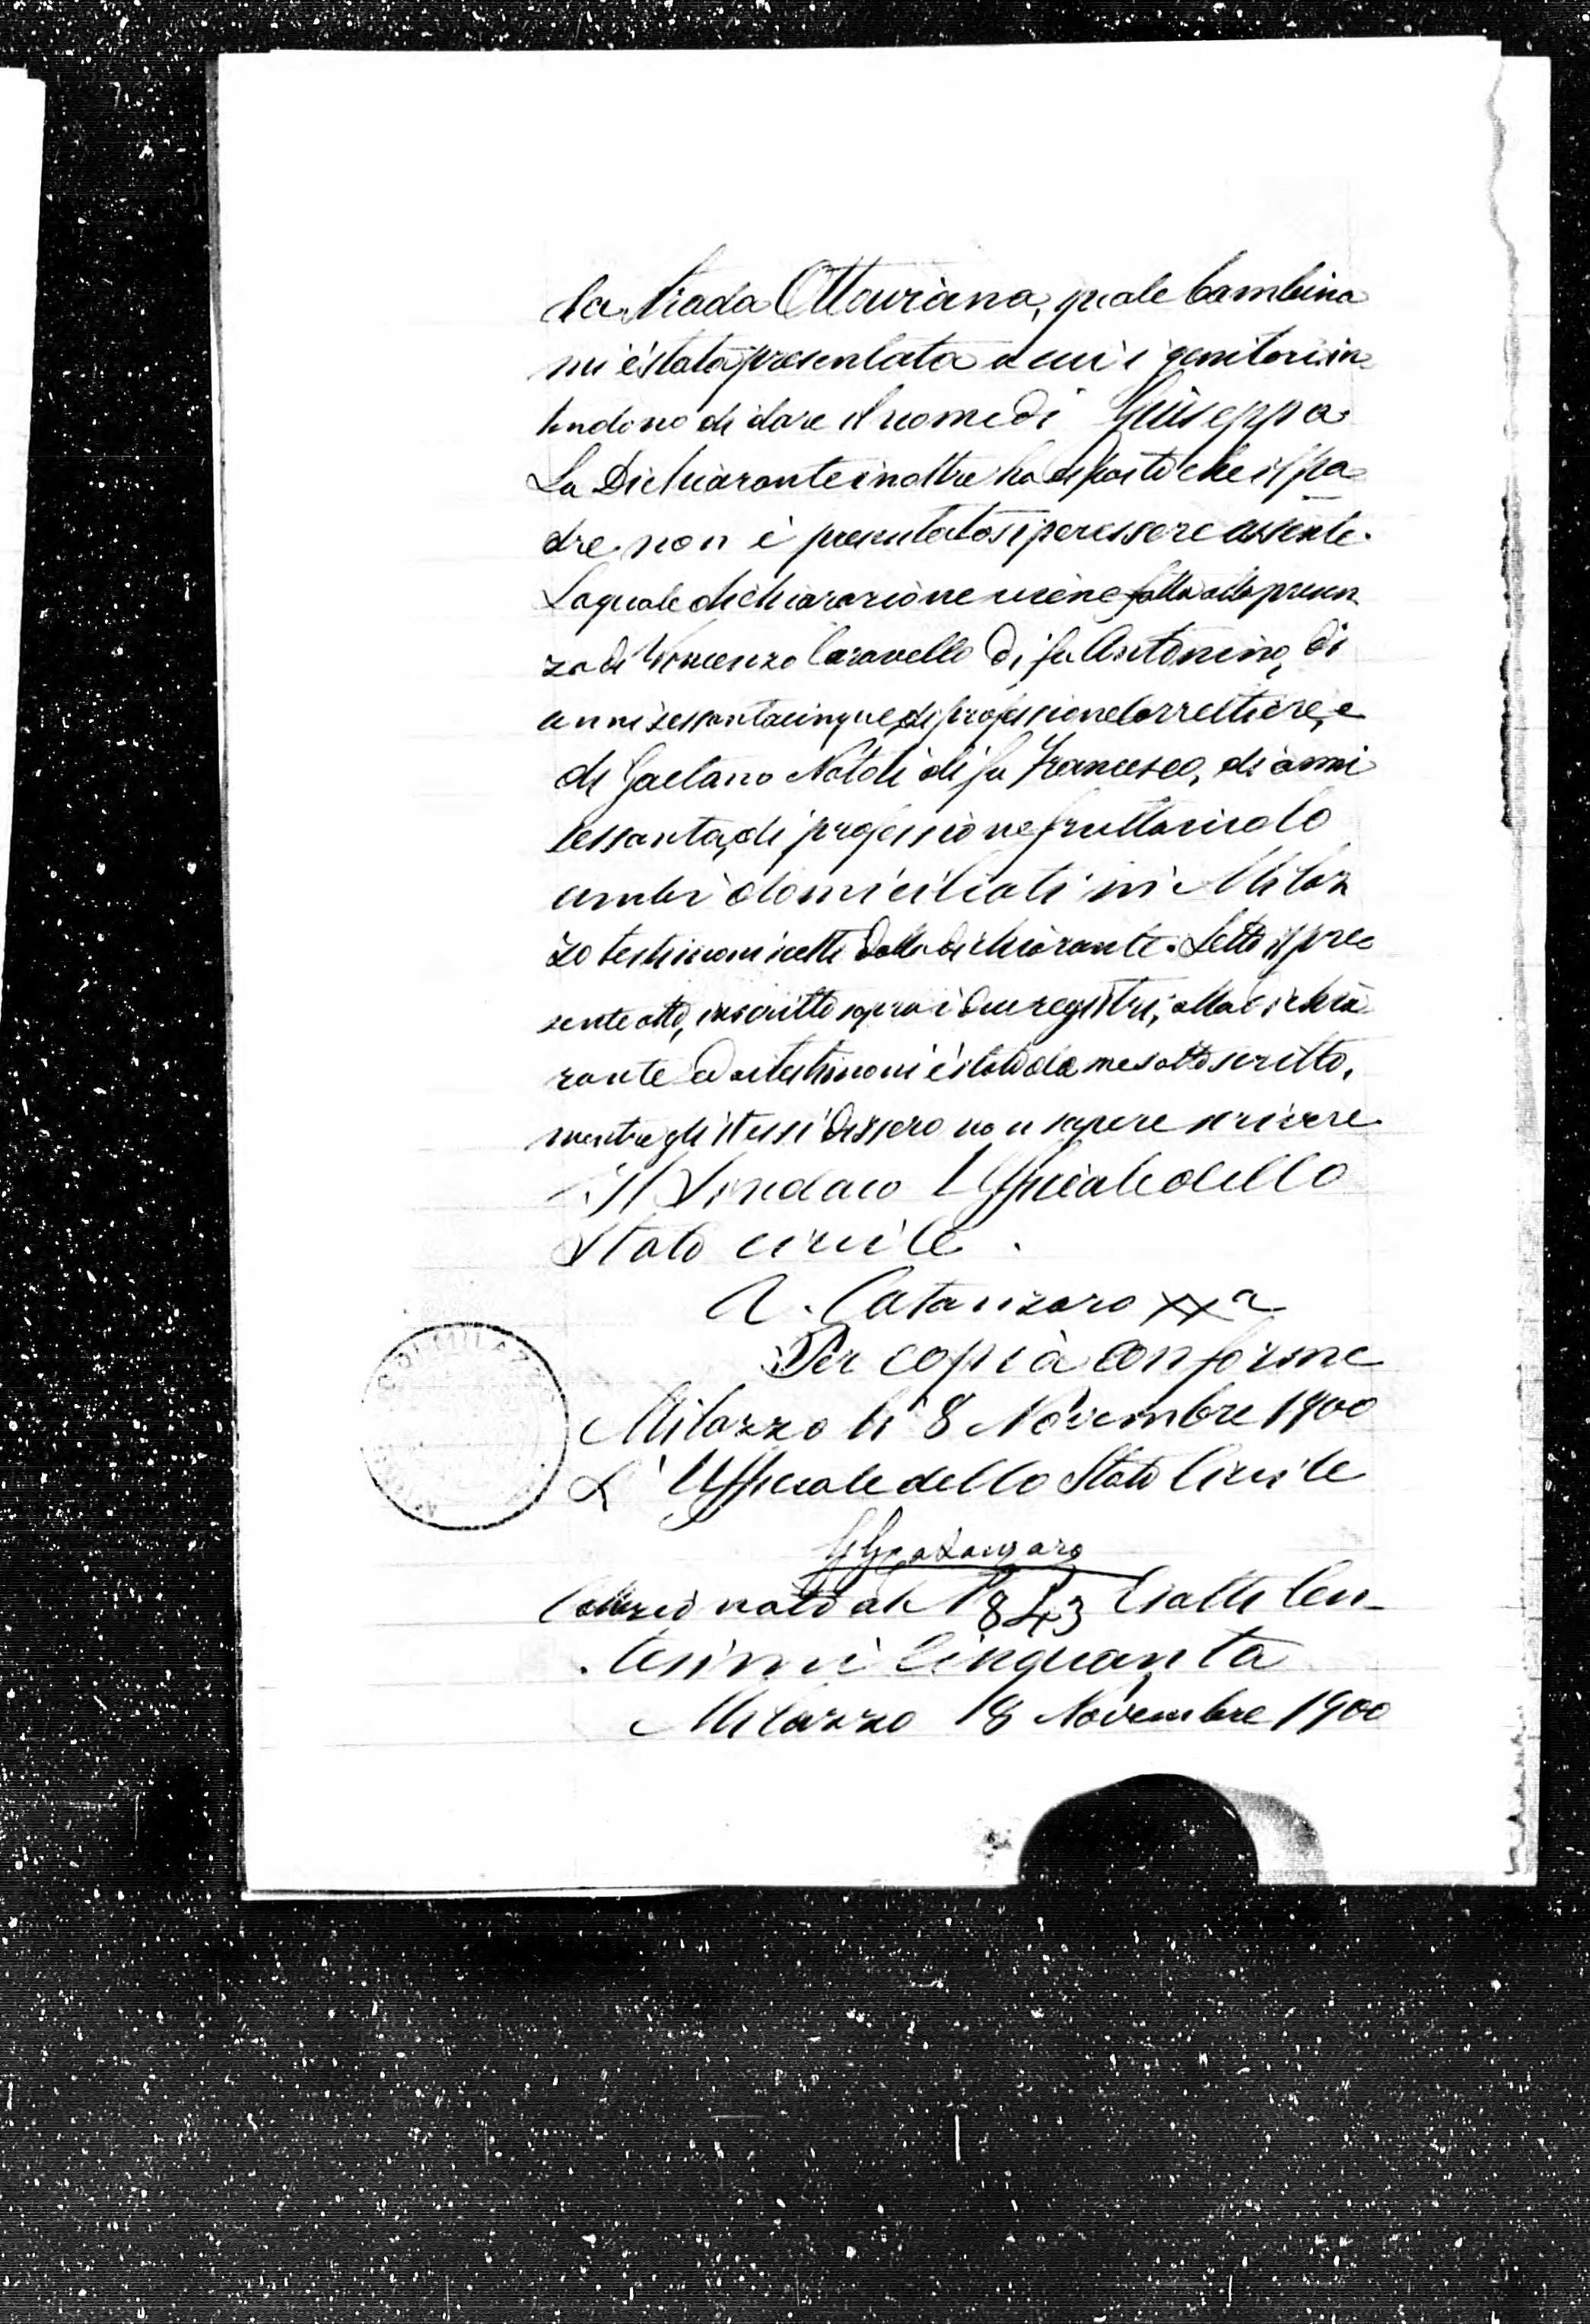 la strada Ottaviana, quale bambina
mi è stata presentata a cui i genitori in=
tendono di dare il nome di Giuseppa
La Dichiarante inoltre ha esposto che il pa=
dre non è presentatosi per essere assente.
La quale dichiarazione viene fatta alla presen
za di Vincenzo Caravello di fu Antonino, di
anni sessantacinque, di professione Correttiere, e
di Gaetano Natoli di fu Francesco, di anni
sessanta, di professione fruttaiuolo
ambi domiciliati in Milaz
zo testimoni scelti dalla dichiarante. Letto il pre=
sente atto, inscritto sopra i due registri, alla dichia=
rante ed ai testimoni è stato da me sottoscritto,
mentre gli stessi dissero non sapere scrivere
Il Sindaco Uffiziale dello
Stato civile.
A. Catanzaro
Per copia conforme
Milazzo li 8 Novembre 1900
L'Ufficiale dello Stato Civile
nato al N 843 Esatti Cen=
tesimi Cinquanta
Milazzo 18 Novembre 1900
MILAZZO